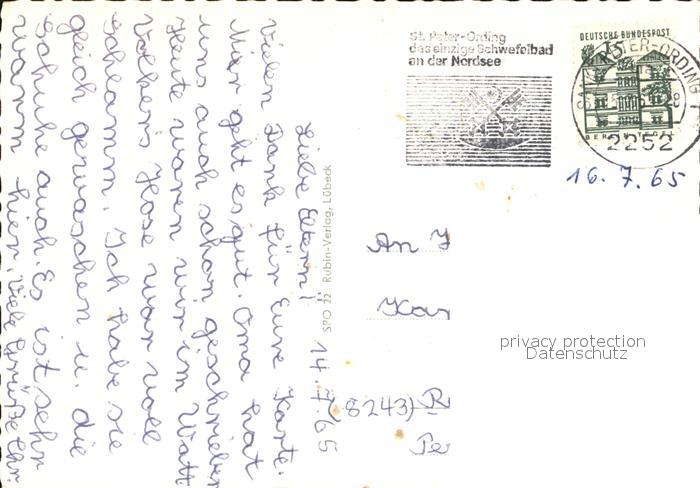 St. Peter-Ording
das einzige Schwefelbad
an der Nordsee
DEUTSCHE BUNDESPOST
ST. PETER-ORDING
2252
16.7.65
14.7.65
Liebe Eltern!
Vielen Dank für Eure Karte.
Mir geht es gut. Oma hat
uns auch schon geschrieben
Heute waren wir im Watt
Volkers Hose war voll
Schlamm. Ich habe sie
gleich gewaschen u. die
Schuhe auch. Es ist sehr
warm hier. Viele Grüße
SPO 22 Rubin-Verlag, Lübeck
An
(8243) R
privacy protection
Datenschutz